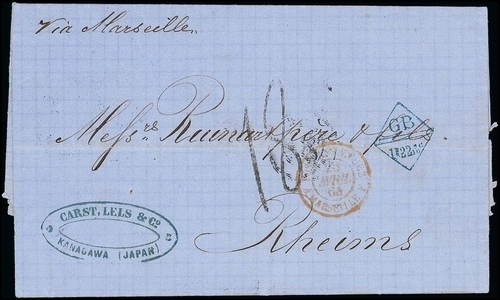 Via Marseille
Messrs. Ruinart père & fils
GB
1F22 4/10c
18
MARSEILLE
Rheims
CARST, LELS & Co
KANAGAWA (JAPAN)